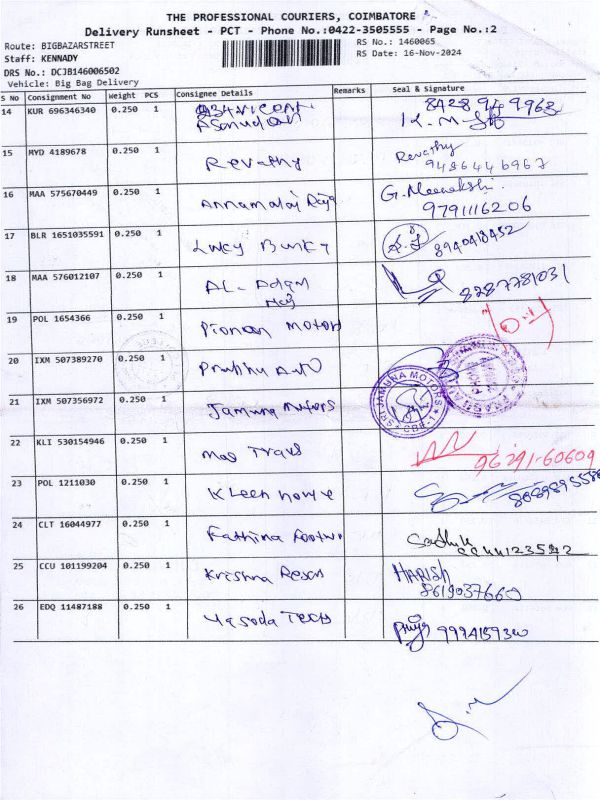 THE PROFESSIONAL COURIERS, COIMBATORE
Delivery Runsheet - PCT - Phone No.:0422-3505555 - Page No.:2
Route: BIGBAZARSTREET
RS No.: 1460065
Staff: KENNADY
RS Date: 16-Nov-2024
DRS No.: DCJB146006502
Vehicle: Big Bag Delivery
S No Consignment No Weight PCS Consignee Details Remarks Seal & Signature
14 KUR 696346340 0.250 1
15 MYD 4189678 0.250 1 Revathy Revathy
9486446967
16 MAA 575670449 0.250 1 Annamalai Raja G. Meenakshi
9791116206
17 BLR 1651035591 0.250 1 Lucy 8940418452
18 MAA 576012107 0.250 1 AL- Adam 8287781031
19 POL 1654366 0.250 1 Pionan Motors
20 IXM 507389270 0.250 1 Prabhu Auto
21 IXM 507356972 0.250 1 Jamuna Motors SRI JAMUNA MOTORS CBE-1
22 KLI 530154946 0.250 1 mas Travs 96291-60609
23 POL 1211030 0.250 1 Kleen
24 CLT 16044977 0.250 1 Fathima Footwr Sadhik
25 CCU 101199204 0.250 1 Krishna Resch HARISH
8619037660
26 EDQ 11487188 0.250 1 Yasoda Tech Priya